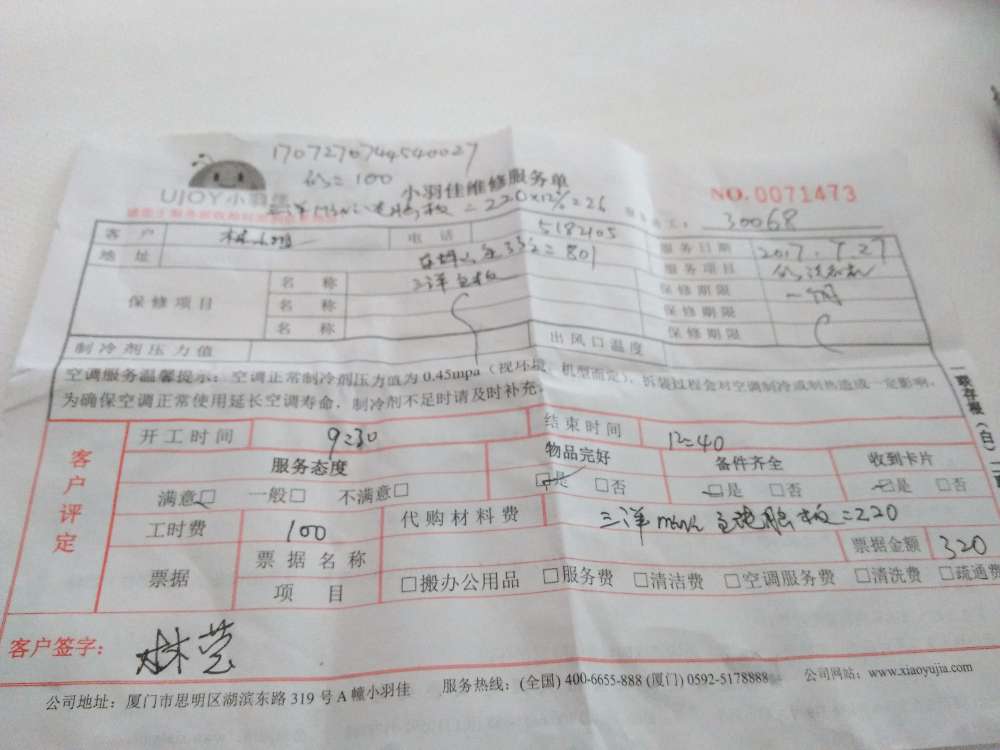 1707270744540027
=100
UJOY小羽佳
小羽佳维修服务单
NO.0071473
=220×12%=26
30068
客户
电话
5182405
服务日期
2017.7.27
地址
服务项目
保修项目
名称
三洋
保修期限
名称
保修期限
名称
保修期限
制冷剂压力值
出风口温度
空调服务温馨提示:空调正常制冷剂压力值为0.45mpa(视环境、机型而定),拆装过程会对空调制冷或制热造成一定影响,
为确保空调正常使用延长空调寿命,制冷剂不足时请及时补充。
一联存根(白)
客户评定
开工时间
9:30
结束时间
12:40
服务态度
物品完好
备件齐全
收到卡片
满意□ 一般□ 不满意□
□是 □否
□是 □否
□是 □否
工时费
100
代购材料费
三洋 电脑板=220
票据
票据名称
票据金额
320
项目
□搬办公用品 □服务费 □清洁费 □空调服务费 □清洗费 □疏通费
客户签字:
林莹
公司地址:厦门市思明区湖滨东路319号A幢小羽佳
服务热线:(全国) 400-6655-888 (厦门) 0592-5178888
公司网站:www.xiaoyujia.com